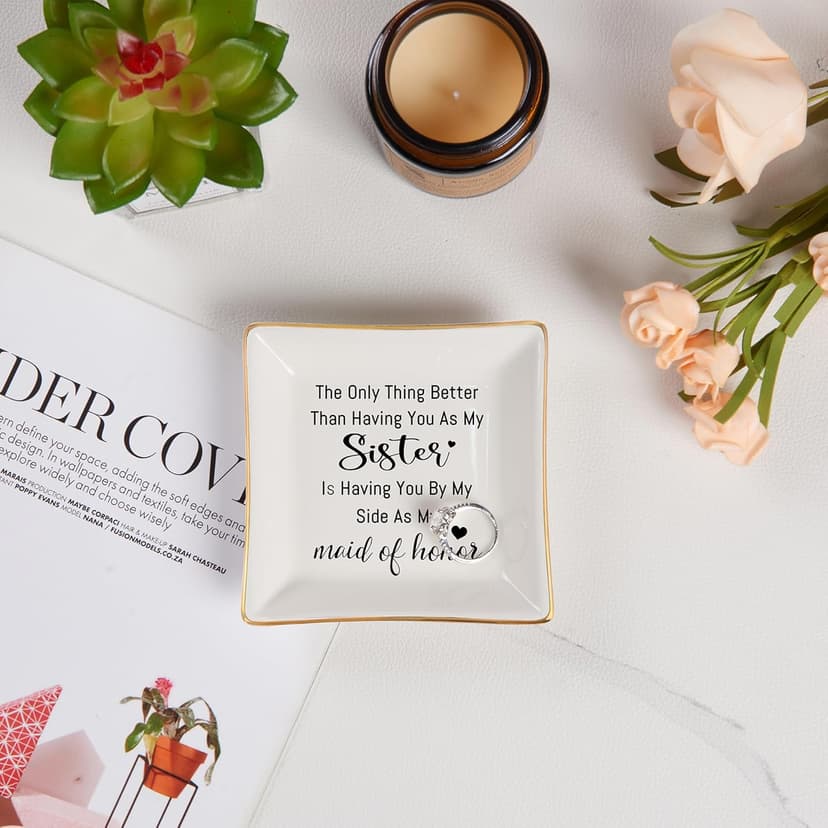 The Only Thing Better
Than Having You As My
Sister
Is Having You By My
Side As My
maid of honor
DER COV
ern define your space, adding the soft edges and
c design. In wallpapers and textiles, take your time
explore widely and choose wisely
MARAIS PRODUCTION MAYBE CORPACI HAIR & MAKE-UP SARAH CHASTEAU
TANT POPPY EVANS MODEL NANA / FUSIONMODELS.CO.ZA